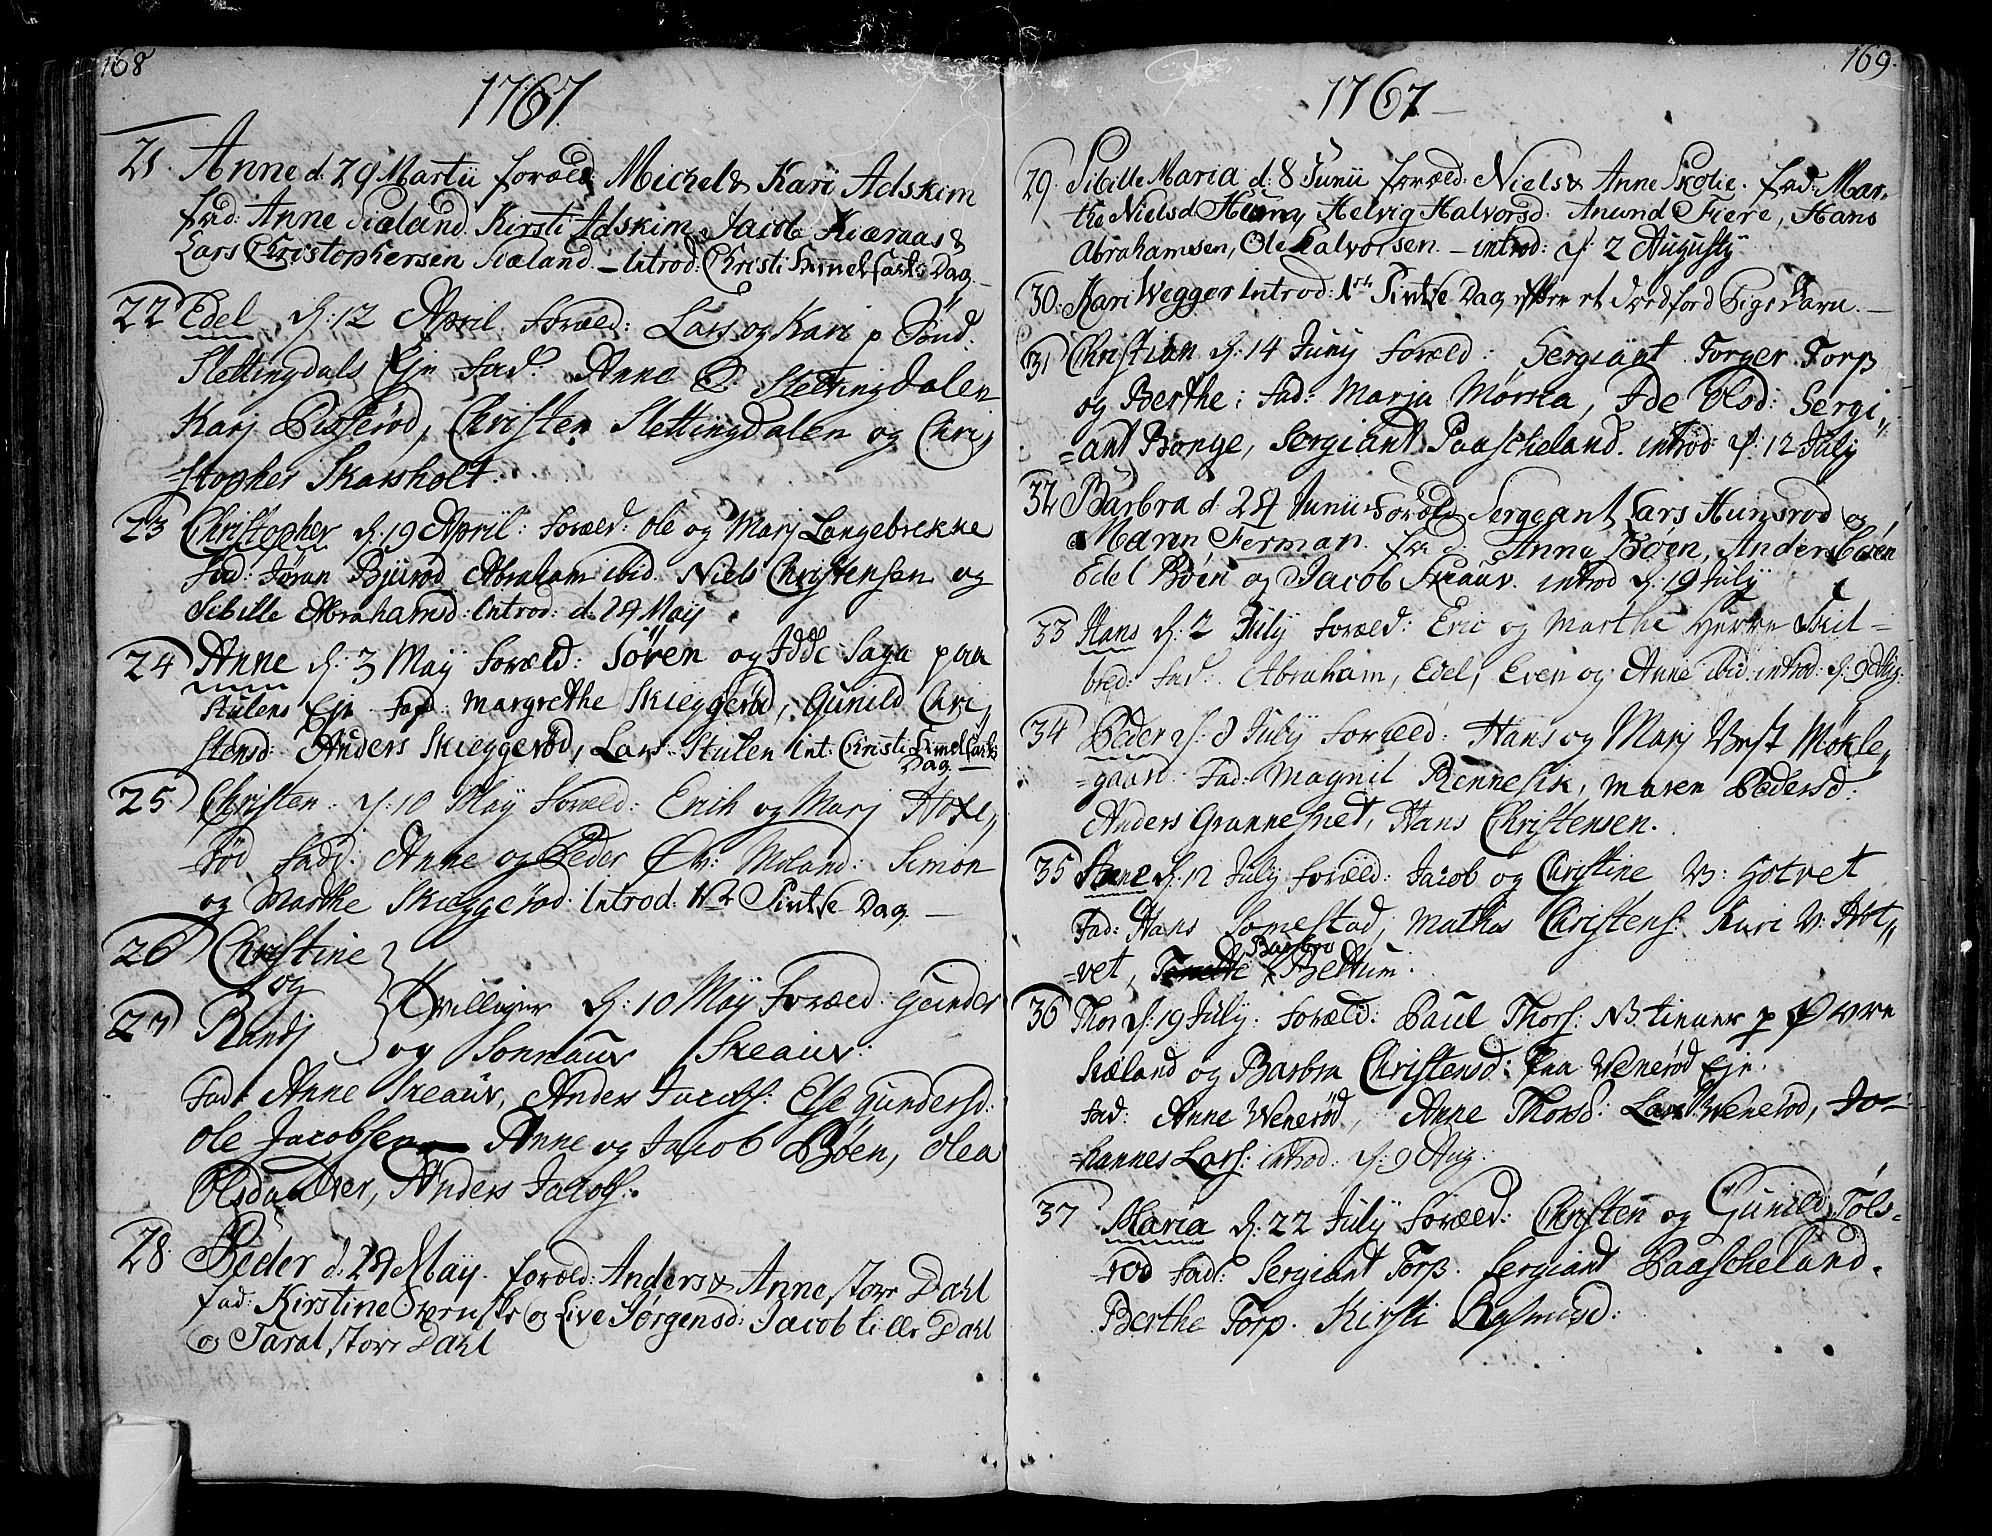 168
1767.
21. Anne d. 29 Martii foræld: Michel & Kari Adskim
fad: Anne Siæland Kirsti Adskim, Jacob Kiæraas &
Lars Christophersen Siæland – Introd: Christi Himelfarts Dag.
22 Edel d: 12 April Foræld: Lars og Kari p Sønd.
Slettingdals Eje Fad: Anne S. Slettingdalen
Karj Pisserød, Christen Slettingdalen og Chri„
=stopher Skarsholt.
23 Christopher d: 19 April: Foræld: Ole og Marj Langebrekke
Fad: Jøran Bjurød Abraham ibid. Niels Christensen og
Sibille Abrahamsd: Introd: d. 24 Maij
24 Anne d: 3 Maij Foræld: Søren og Idde Saga paa
Stulens Eje Fad: Margrethe Skieggerød, Gunild Chri„
stensd: Anders Skieggerød, Lars Stulen int: Christi Himelfarts
Dag
25 Christen: d: 10 Maij Foræld: Erich og Marj
=rød fadd: Anne og Peder Øv: Moland: Simon
og Marthe Skieggerød. Introd. Pintse Dag. –
26 Christine
og
27 Randj
Tvillinger d: 10 Maij Foræld: Gunder
og Sonnauv Skeauv:
Fad: Anne Skeauv, Anders Jacobs: Else Gundersd:
Ole Jacobsen – Anne og Jacob Bøen, Olea
Olsdaatter, Anders Jacobs:
28. Peder d. 24 Maij. foræld: Anders & Anne store Dahl
fad: Kirstine og Live Jørgensd: Jacob lille Dahl
og Taral store Dahl
169.
1767
29. Sibille Maria d: 8 Junii foræld: Niels & Anne Skolie. fad: Mar-
the Nielsd Helvig Halvorsd: Anund Fiere, Hans
Abrahamsen, Ole Halvorsen – introd: d: 2 Augustij
30. Kari Wegger Introd: Pintse Dag efter et Barn. –
31 Christian d: 14 Junij Foræld: Sergiant Torger Torp
og Berthe: Fad: Marja Mørsta, Ide Olsd: Sergi„
=ant Bonge, Sergiant Paascheland. introd: d: 12 Julij
32 Barbra d. 24 Junii Foræld Sergeant Lars Hunsrod og
Maren Ferman. fad Anne Bøen, Anders bøen
Edel Bøen og Jacob Skauv. introd d: 19 Julij
33 Hans d: 2 Julij Foræld: Eric og Marthe
bred: Fad: Abraham, Edel, Even og Anne ibid: introd: d: 9 Aug:
34 Peder d: 8 Julij Foræld: Hans og Marj Vest Møkle„
=gaard Fad: Magnil Rennesik, Maren Pedersd:
Anders Grannesriet, Hans Christensen.
35 Anne d: 12 Julij Foræld: Jacob og Christine V: Hotvet
Fad: Hans Somestad, Mathis Christens: Kari V: Hot„
=vet, Barbro Bettum.
36 Thor d: 19 Julij: Foræld: Paul Thors: p Øvre
Siæland og Barbra Christensd: paa Wenerød Eje.
Fad: Anne Wenerød, Anne Thorsd: Lars Wenerød, Jo-
=hannes Lars: introd: d: 9 Aug:
37 Maria d: 22 Julij Foræld: Christen og Gunild Tøls-
=rød Fad: Sergiant Torp. Sergiant Paascheland.
Berthe Torp. Kirsti Rasmusd: